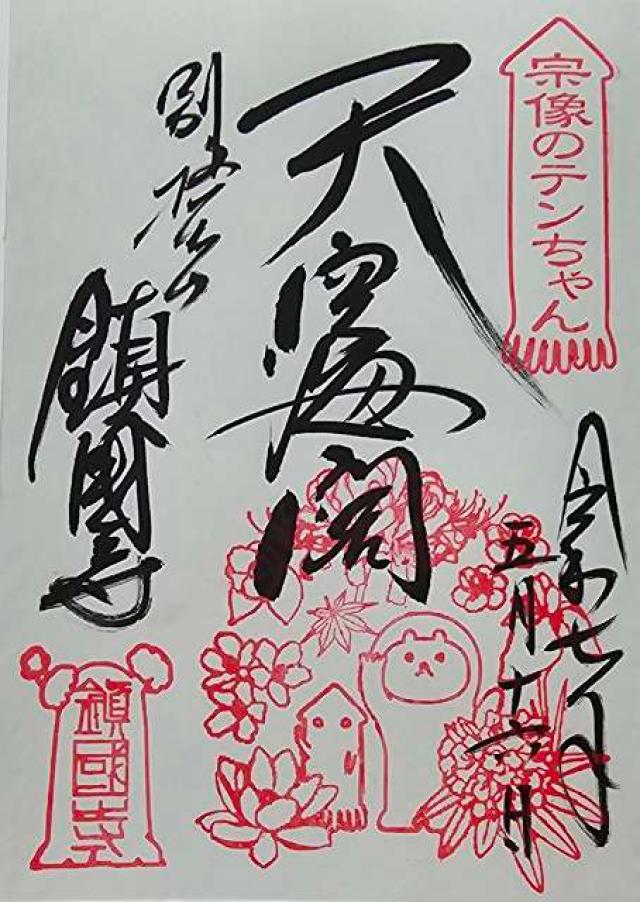 宗像のテンちゃん
令和七年
五月十六日
天空海闊
別格本山
鎮國寺
鎮國寺